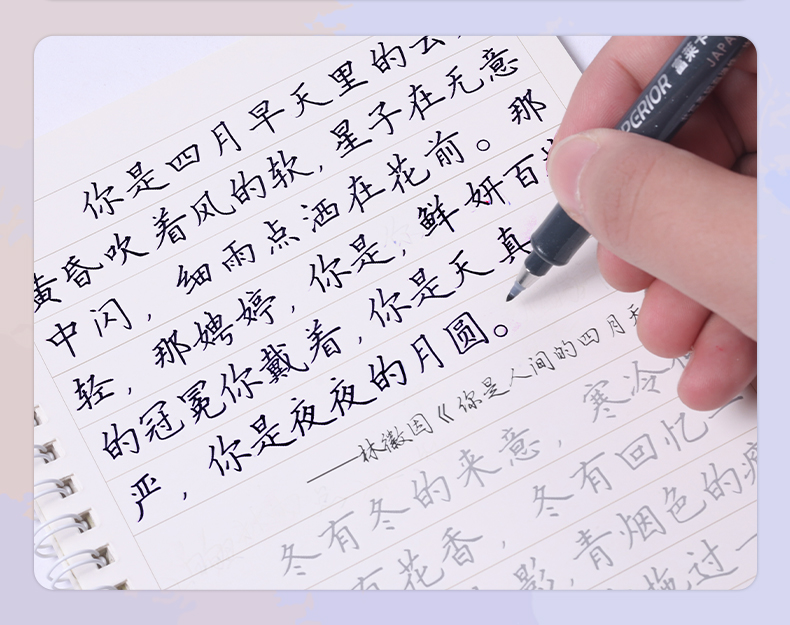 你是四月早天里的云,
黄昏吹着风的软,星子在无意
中闪,细雨点洒在花前。那
轻,那娉婷,你是,鲜妍百
的冠冕你戴着,你是天真
严,你是夜夜的月圆。
——林徽因《你是人间的四月天
冬有冬的来意,寒冷
有花香,冬有回忆一
影,青烟色的
拖过一
PERIOR
富莱卡
JAPA